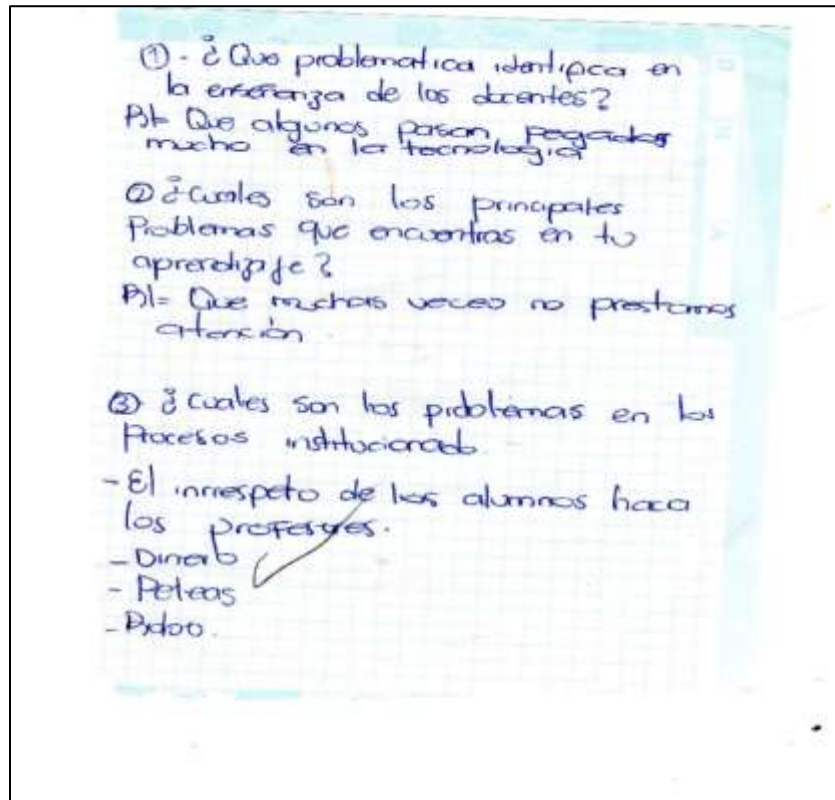 ① - ¿Que problematica identifica en
la enseñanza de los docentes?
R/= Que algunos pasan pegados
mucho en la tecnologia
② ¿cuales son los principales
Problemas que encuentras en tu
aprendizaje?
R/= Que muchas veces no prestamos
atención.
③ ¿cuales son los problemas en los
Procesos institucionado
- El inrrespeto de los alumnos haca
los profesores.
- Dinero
- Peleas